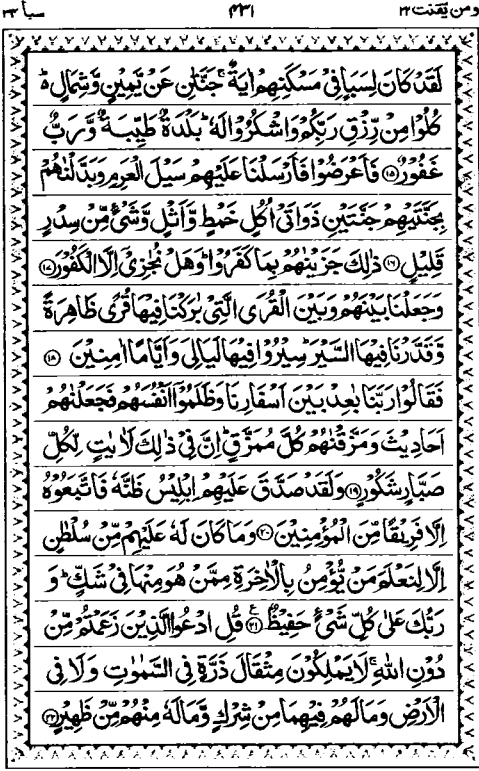 ومن یقنت ۲۲ ۴۳۱ سبا ۳۴
لَقَدْ كَانَ لِسَبَاٍ فِیْ مَسْكَنِهِمْ اٰیَةٌ ۚ جَنَّتٰنِ عَنْ یَّمِیْنٍ وَّشِمَالٍ ؕ
كُلُوْا مِنْ رِّزْقِ رَبِّكُمْ وَاشْكُرُوْا لَهٗ ؕ بَلْدَةٌ طَیِّبَةٌ وَّرَبٌّ
غَفُوْرٌ ﴿۱۵﴾ فَاَعْرَضُوْا فَاَرْسَلْنَا عَلَیْهِمْ سَیْلَ الْعَرِمِ وَبَدَّلْنٰهُمْ
بِجَنَّتَیْهِمْ جَنَّتَیْنِ ذَوَاتَیْ اُكُلٍ خَمْطٍ وَّاَثْلٍ وَّشَیْءٍ مِّنْ سِدْرٍ
قَلِیْلٍ ﴿۱۶﴾ ذٰلِكَ جَزَیْنٰهُمْ بِمَا كَفَرُوْا ؕ وَهَلْ نُجٰزِیْۤ اِلَّا الْكَفُوْرَ ﴿۱۷﴾
وَجَعَلْنَا بَیْنَهُمْ وَبَیْنَ الْقُرَى الَّتِیْ بٰرَكْنَا فِیْهَا قُرًى ظَاهِرَةً
وَّقَدَّرْنَا فِیْهَا السَّیْرَ ؕ سِیْرُوْا فِیْهَا لَیَالِیَ وَاَیَّامًا اٰمِنِیْنَ ﴿۱۸﴾
فَقَالُوْا رَبَّنَا بٰعِدْ بَیْنَ اَسْفَارِنَا وَظَلَمُوْۤا اَنْفُسَهُمْ فَجَعَلْنٰهُمْ
اَحَادِیْثَ وَمَزَّقْنٰهُمْ كُلَّ مُمَزَّقٍ ؕ اِنَّ فِیْ ذٰلِكَ لَاٰیٰتٍ لِّكُلِّ
صَبَّارٍ شَكُوْرٍ ﴿۱۹﴾ وَلَقَدْ صَدَّقَ عَلَیْهِمْ اِبْلِیْسُ ظَنَّهٗ فَاتَّبَعُوْهُ
اِلَّا فَرِیْقًا مِّنَ الْمُؤْمِنِیْنَ ﴿۲۰﴾ وَمَا كَانَ لَهٗ عَلَیْهِمْ مِّنْ سُلْطٰنٍ
اِلَّا لِنَعْلَمَ مَنْ یُّؤْمِنُ بِالْاٰخِرَةِ مِمَّنْ هُوَ مِنْهَا فِیْ شَكٍّ ؕ وَ
رَبُّكَ عَلٰى كُلِّ شَیْءٍ حَفِیْظٌ ﴿۲۱﴾ ع قُلِ ادْعُوا الَّذِیْنَ زَعَمْتُمْ مِّنْ
دُوْنِ اللّٰهِ ۚ لَا یَمْلِكُوْنَ مِثْقَالَ ذَرَّةٍ فِی السَّمٰوٰتِ وَلَا فِی
الْاَرْضِ وَمَا لَهُمْ فِیْهِمَا مِنْ شِرْكٍ وَّمَا لَهٗ مِنْهُمْ مِّنْ ظَهِیْرٍ ﴿۲۲﴾